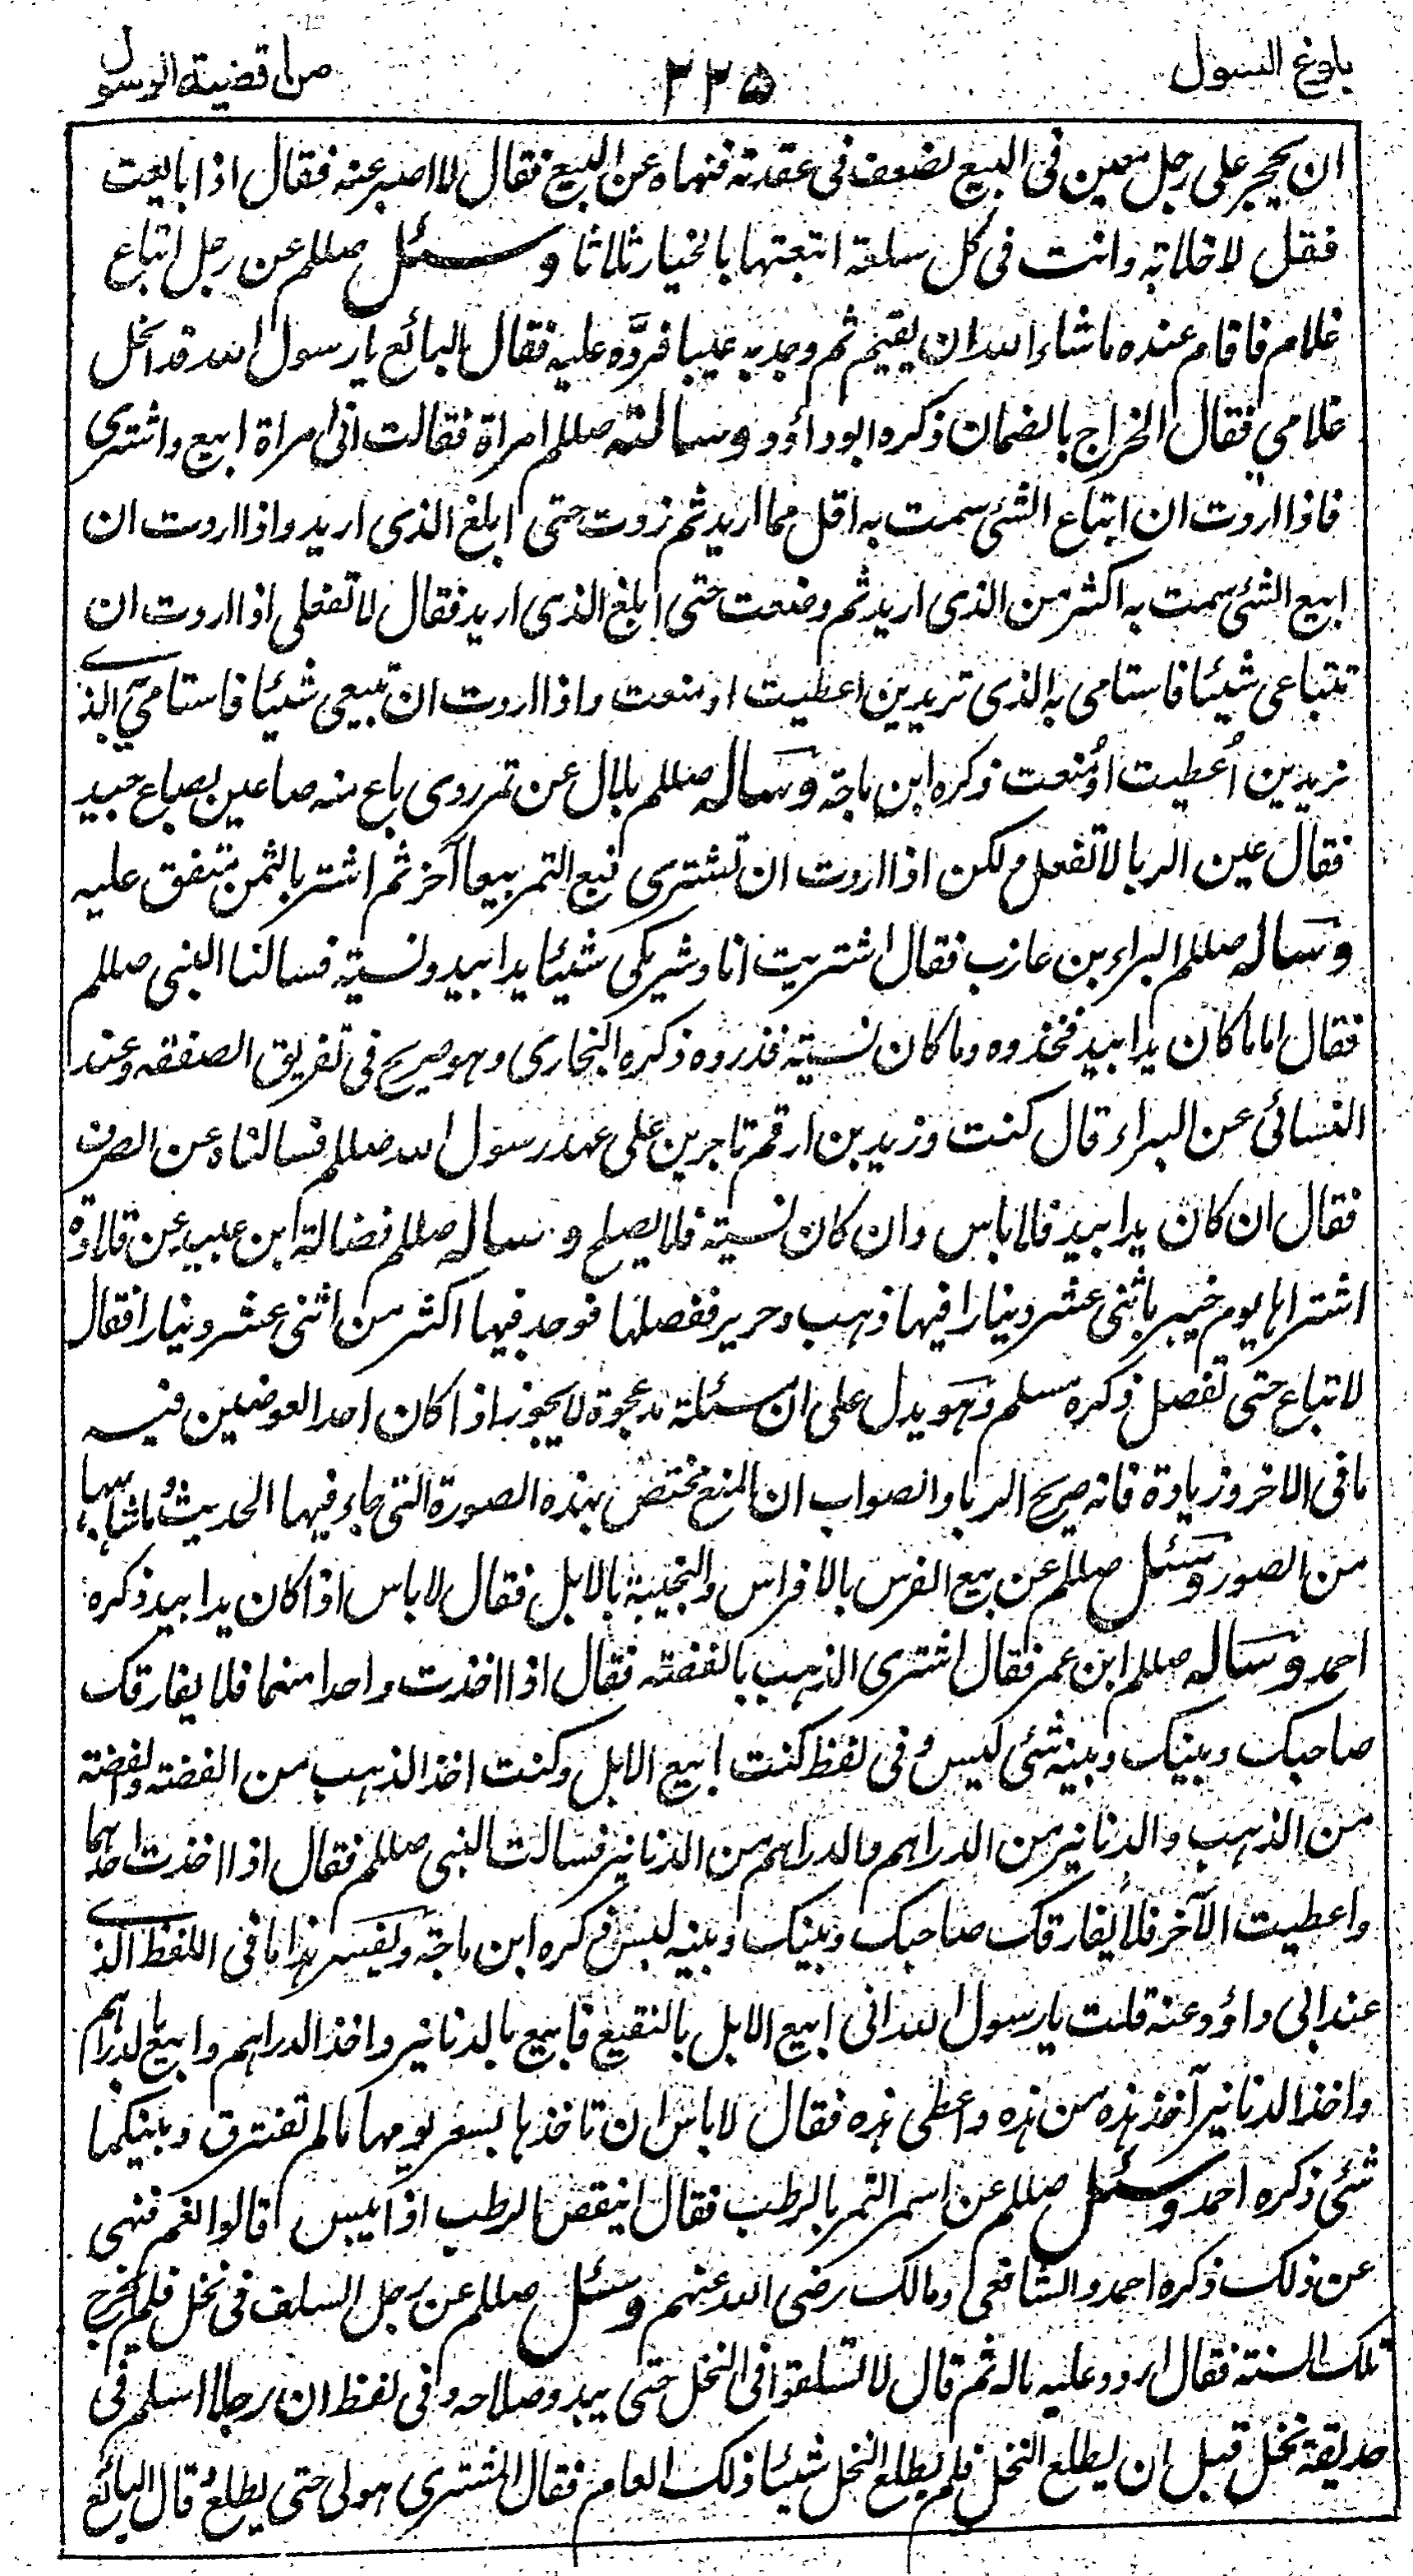 بلوغ السول ٢٢٥ من اقضية الرسول
ان يحجر على رجل معين فى البيع لضعف فى عقدته فنهاه عن البيع فقال لا اصبر عنه فقال اذا بايعت
فقل لا خلابة وانت فى كل سلعة ابتعتها بالخيار ثلاثا وسئل صللم عن رجل ابتاع
غلام فاقام عنده ما شاء الله ان يقيم ثم وجد به عيبا فردَّه عليه فقال البائع يا رسول الله قد استغل
غلامي فقال الخراج بالضمان ذكره ابوداؤد وسالته صللم امراة فقالت انى امراة ابيع واشترى
فاذا اردت ان ابتاع الشئ سمت به اقل مما اريد ثم زدت حتى ابلغ الذى اريد واذا اردت ان
ابيع الشئ سمت به اكثر من الذى اريد ثم وضعت حتى ابلغ الذى اريد فقال لا تفعلى اذا اردت ان
تبتاعى شيئا فاستامى به الذى تريدين اعطيت او منعت واذا اردت ان تبيعى شيئا فاستامى به الذى
تريدين اُعطيت اومُنعت ذكره ابن ماجة وساله صللم بلال عن تمر ردى باع منه صاعين بصاع جيد
فقال عين الربا لا تفعل ولكن اذا اردت ان تشترى فبع التمر بيعا آخر ثم اشتر بالثمن متفق عليه
وساله صللم البراء بن عازب فقال اشتريت انا وشريكى شيئا يدا بيد ونسيئة فسالنا النبى صللم
فقال اما ما كان يدا بيد فخذوه وما كان نسيئة فذروه ذكره البخارى وهو صريح فى تفريق الصفقه وعند
النسائى عن البراء قال كنت وزيد بن ارقم تاجرين على عهد رسول الله صللم فسالناه عن الصرف
فقال ان كان يدا بيد فلا باس وان كان نسيئة فلا يصلح وساله صللم فضالة ابن عبيد عن قلادة
اشتراها يوم خيبر باثنى عشر دينارا فيها ذهب وحرير ففصلها فوجد فيها اكثر من اثنى عشر دينارا فقال
لا تباع حتى تفصل ذكره مسلم وهو يدل على ان مسئلة مد عجوة لا يجوز اذا كان احد العوضين فيه
ما فى الاخر وزيادة فانه صريح الربا والصواب ان المنع مختص بهذه الصورة التى جاء فيها الحديث وما شابهها
من الصور وسئل صللم عن بيع الفرس بالافراس والنجيبة بالابل فقال لا باس اذا كان يدا بيد ذكره
احمد وساله صللم ابن عمر فقال اشترى الذهب بالفضته فقال اذا اخذت واحدا منهما فلا يفارقك
صاحبك وبينك وبينه شئ لبس وفى لفظ كنت ابيع الابل وكنت اخذ الذهب من الفضته والفضته
من الذهب والدنانير من الدراهم والدراهم من الدنانير فسالت النبى صللم فقال اذا اخذت احدهما
واعطيت الآخر فلا يفارقك صاحبك وبينك وبينه لبس ذكره ابن ماجة وتفسير هذا ما فى اللفظ الذى
عند ابى داؤد عنه قلت يا رسول الله انى ابيع الابل بالنقيع فابيع بالدنانير واخذ الدراهم وابيع بالدراهم
واخذ الدنانير آخذ هذه من هذه واعطى هذه فقال لا باس ان تاخذها بسعر يومها ما لم تفترق وبينكما
شئ ذكره احمد وسئل صللم عن اسمر التمر بالرطب فقال اينقص الرطب اذا يبس قالوا نعم فنهى
عن ذلك ذكره احمد والشافعى ومالك رضى الله عنهم وسئل صللم عن رجل السلف فى نخل فلم يخرج
تلك السنة فقال اردد عليه ماله ثم قال لا تسلفوا فى النخل حتى يبدو صلاحه وفى لفظ ان رجلا اسلم فى
حديقة نخل قبل ان يطلع النخل فلم يطلع النخل شيئا ذلك العام فقال المشترى هو لى حتى يطلع قال البائع